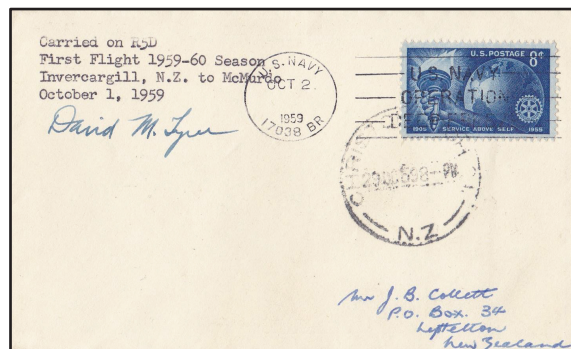 Carried on R5D
First Flight 1959-60 Season
Invercargill, N.Z. to McMurdo
October 1, 1959
David M. Tyree
U.S. NAVY
OCT 2
1959
17038 BR
U.S. POSTAGE 8¢
U.S. NAVY
OPERATION
1905 SERVICE ABOVE SELF 1955
N.Z.
Mr J. B. Collett
P.O. Box. 34
Lyttelton
New Zealand